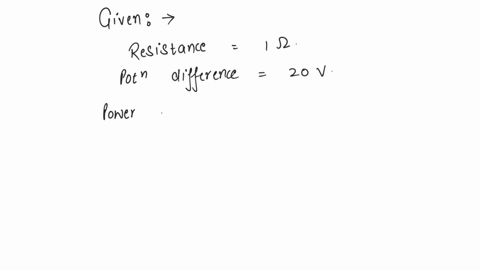 Given: →
Resistance = 1 Ω.
Potⁿ difference = 20 V.
Power